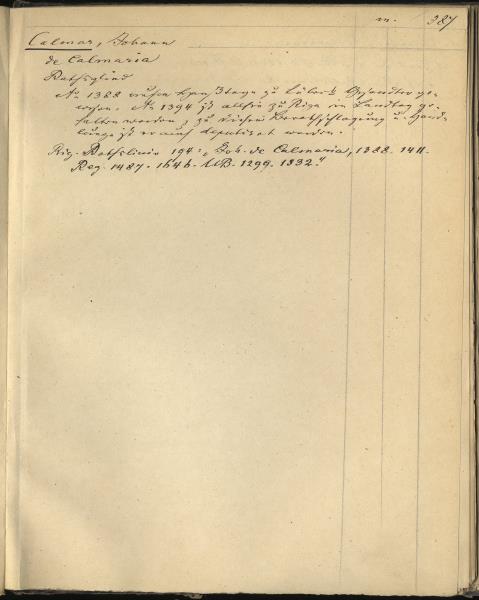 m. 387
Calmar, Johann
de Calmaria
Rathsglied
Ao 1388 auf dem Hansetage zu Lübeck Gesandter ge-
wesen. Ao 1394 ist allhie zu Riga ein Landtag ge-
halten worden, zu diesen Berathschlagung u. Hand-
lunge ist er auch deputirt worden.
Rig. Rathslinie 194: „Joh. de Calmaria, 1388. 1411.
Reg. 1487. 1646. UB. 1299. 1332."